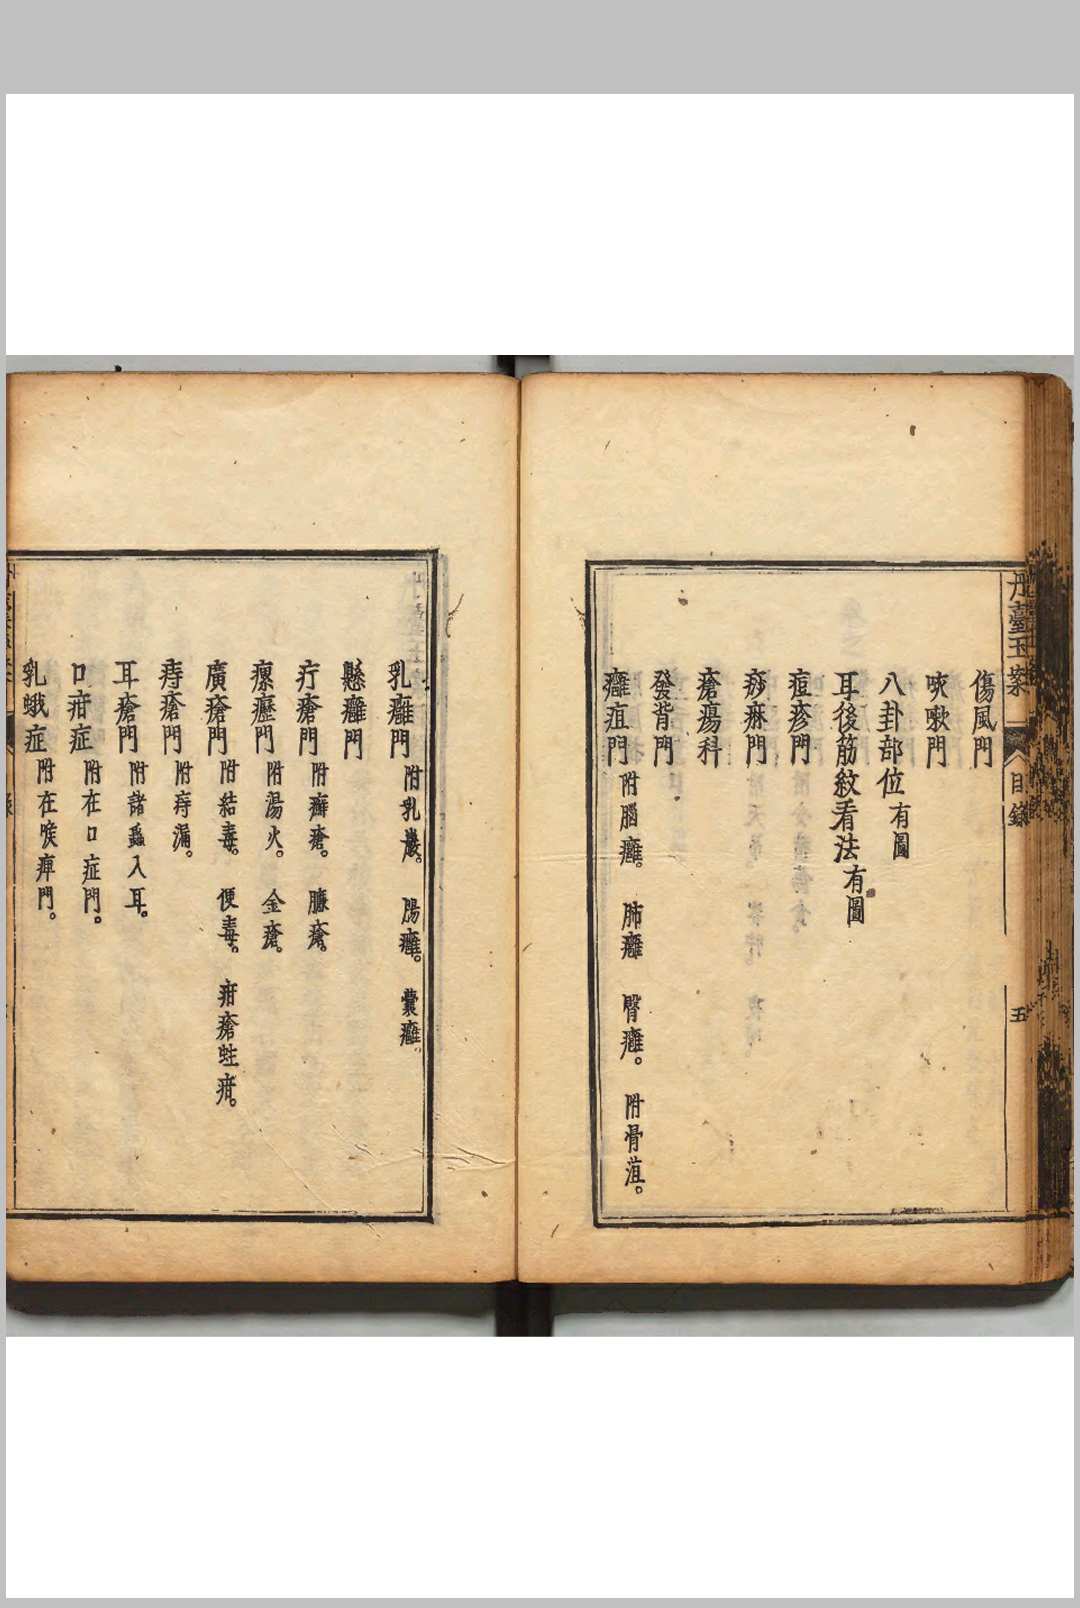 丹臺玉案
目錄
五
傷風門
咳嗽門
八卦部位 有圖
耳後筋紋看法 有圖
痘疹門
痧痳門
瘡瘍科
發背門
癰疽門 附腦癰。 肺癰 臀癰。 附骨疽。
乳癰門 附乳巖。 腸癰。 囊癰。
懸癰門
疔瘡門 附癬瘡。 臁瘡。
瘰癧門 附湯火。 金瘡。
廣瘡門 附結毒。 便毒。 疳瘡蛀疳。
痔瘡門 附痔漏。
耳瘡門 附諸蟲入耳。
口疳症 附在口症門。
乳蛾症 附在喉痺門。